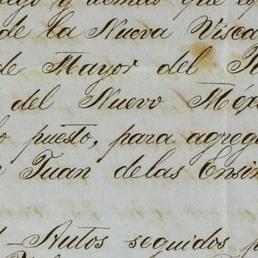 y demas que
de la Nueva Visca
de Mayor del
del Nuevo Méx
puesto, para agreg
Juan de las Ensin
Autos seguidos p